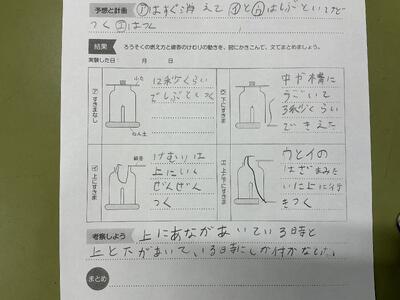 予想と計画 アはすぐ消えて イとウはしぶといけど
つく エはつく
結果 ろうそくの燃え方と線香のけむりの動きを、図にかきこんで、文でまとめましょう。
実験した日 月 日
ア すきまなし
ふた
ねん土
12秒くらい
でしぶとく
中や横に
うごいて
3秒くらい
できえた
イ 上にすきま
線香
けむりは
上にいく
ぜんぜん
つく
ウとイの
はざまみた
いに上に行
きつく
考察しよう 上にあながあいている時と
上と下があいている時にしか付かない。
まとめ